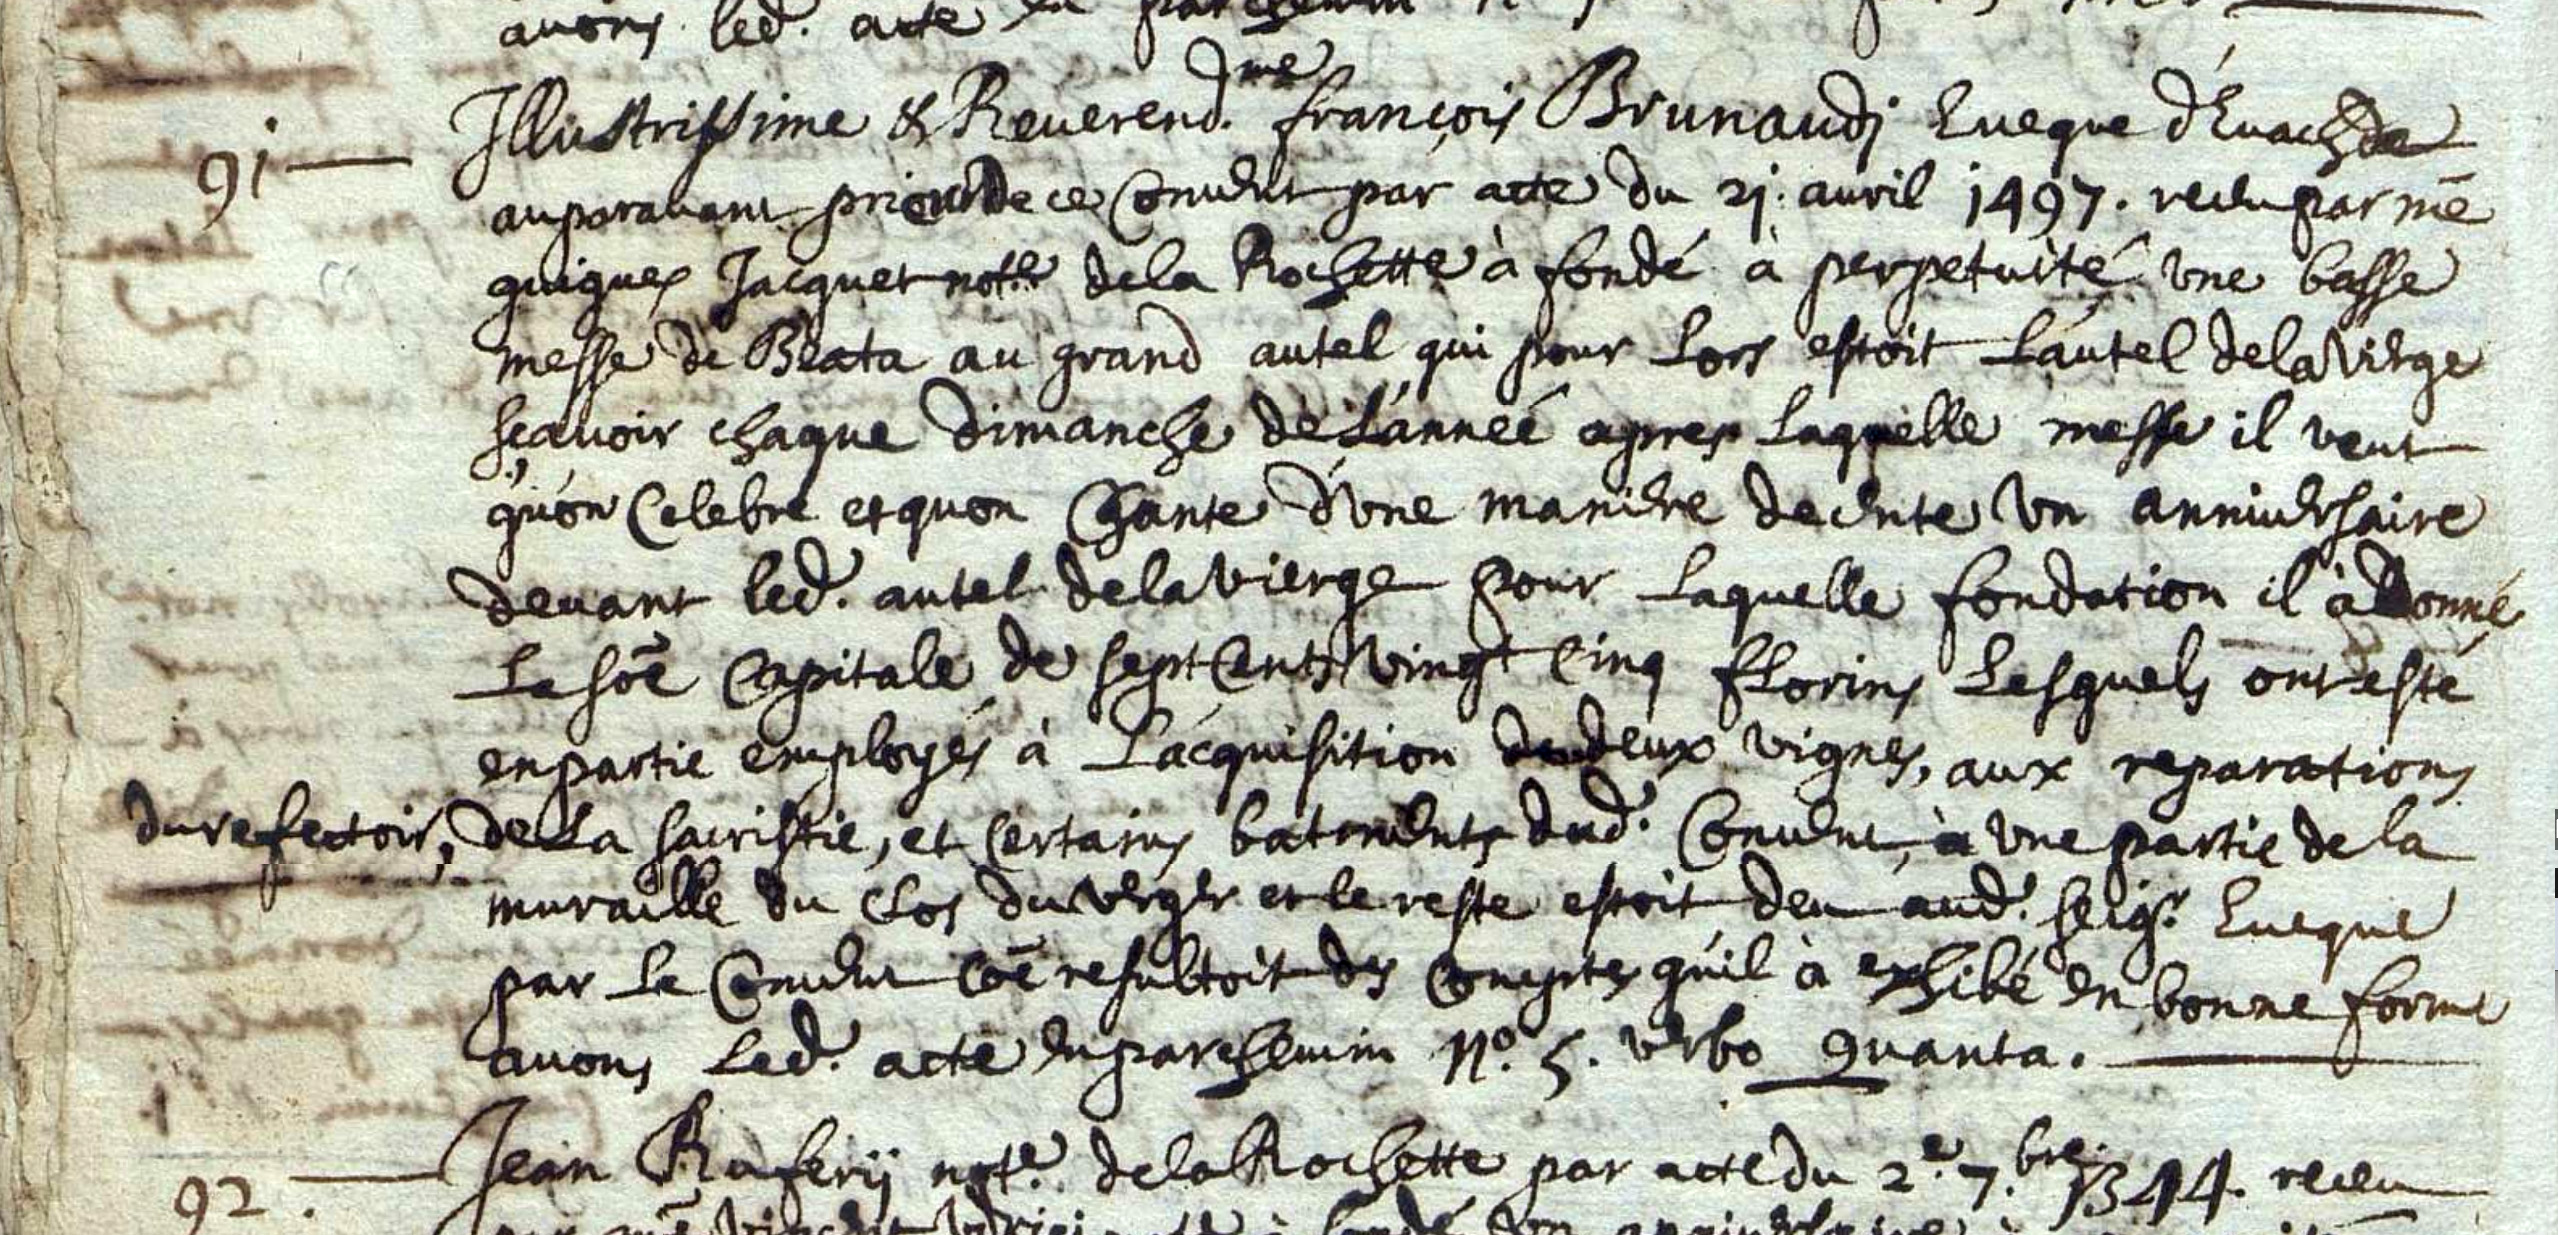 auons led. acte en parchemin
91 — Illustrissime & Reuerend.me françois Brunaudj Eueque d'Euachda
auparauant prieur de ce Conuent par acte du 21. auril 1497. receu par mē
guigues Jacquet notre. dela Rochette à fondé à perpetuité vne basse
messe de Beata au grand autel qui pour Lors estoit L'autel dela Vierge
sçauoir chaque dimanche de L'année apres Laquelle messe il veut
qu'on Celebre et quon Chante d'une maniere decente un anniuersaire
deuant led. autel dela vierge pour Laquelle fondation il à donné
La sōe Capitale de sept Cents vingt Cinq fLorins Lesquels ont esté
en partie employés à L'acquisition de deux vignes, aux reparations
du refectoir, de La sacristie, et Certains batiments dud. Conuent, à vne partie de la
muraille du Clos du verger et le reste estoit deu aud. seigr. Eueque
par Le Conuent Cōe resultoit des Comptes qu'il à exhibé en bonne forme
auons Led. acte en parchemin No. 5. verbo Quanta. —
92. — Jean Ruferij note. dela Rochette par acte du 2e. 7.bre. 1344. receu